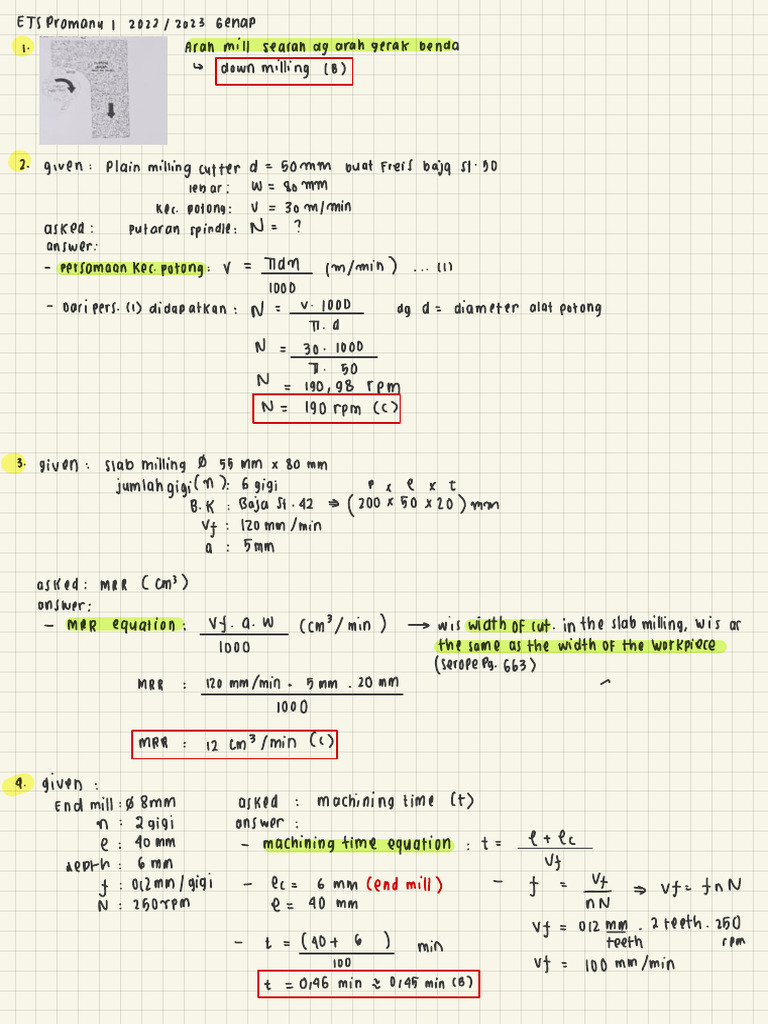 ETS Promanu 1 2022/2023 Genap
1.
Arah mill searah dg arah gerak benda
↳ down milling (B)
2. given: Plain milling cutter d = 50mm buat Freis baja St. 50
lebar: W = 80 mm
kec. potong: V = 30 m/min
asked: putaran spindle: N = ?
answer:
- Persamaan kec. potong: V = πdn / 1000 (m/min) ... (1)
- Dari pers. (1) didapatkan: N = V. 1000 / π. d dg d = diameter alat potong
N = 30. 1000 / π. 50
N = 190,98 rpm
N = 190 rpm (C)
3. given: Slab milling Ø 55 mm x 80 mm
jumlah gigi (n): 6 gigi
P x l x t
B.K: Baja St. 42 ⇒ (200 x 50 x 20) mm
Vf: 120 mm/min
a: 5mm
asked: MRR (cm³)
answer:
- MRR equation: Vf. a. W / 1000 (cm³/min) → w is width of cut. in the slab milling, w is ar
the same as the width of the workpiece
(serope Pg. 663)
MRR: 120 mm/min. 5 mm. 20 mm / 1000
MRR: 12 cm³/min (C)
4. given:
End mill: Ø 8mm asked: machining time (t)
n: 2 gigi answer:
l: 40 mm - machining time equation: t = l + lc / Vf
depth: 6 mm
f: 0,2 mm/gigi - lc = 6 mm (end mill) - f = Vf / nN ⇒ Vf = fnN
N: 250 rpm l = 40 mm
Vf = 0,2 mm/teeth. 2 teeth. 250 rpm
- t = (40 + 6) / 100 min
Vf = 100 mm/min
t = 0,46 min ≈ 0,45 min (B)